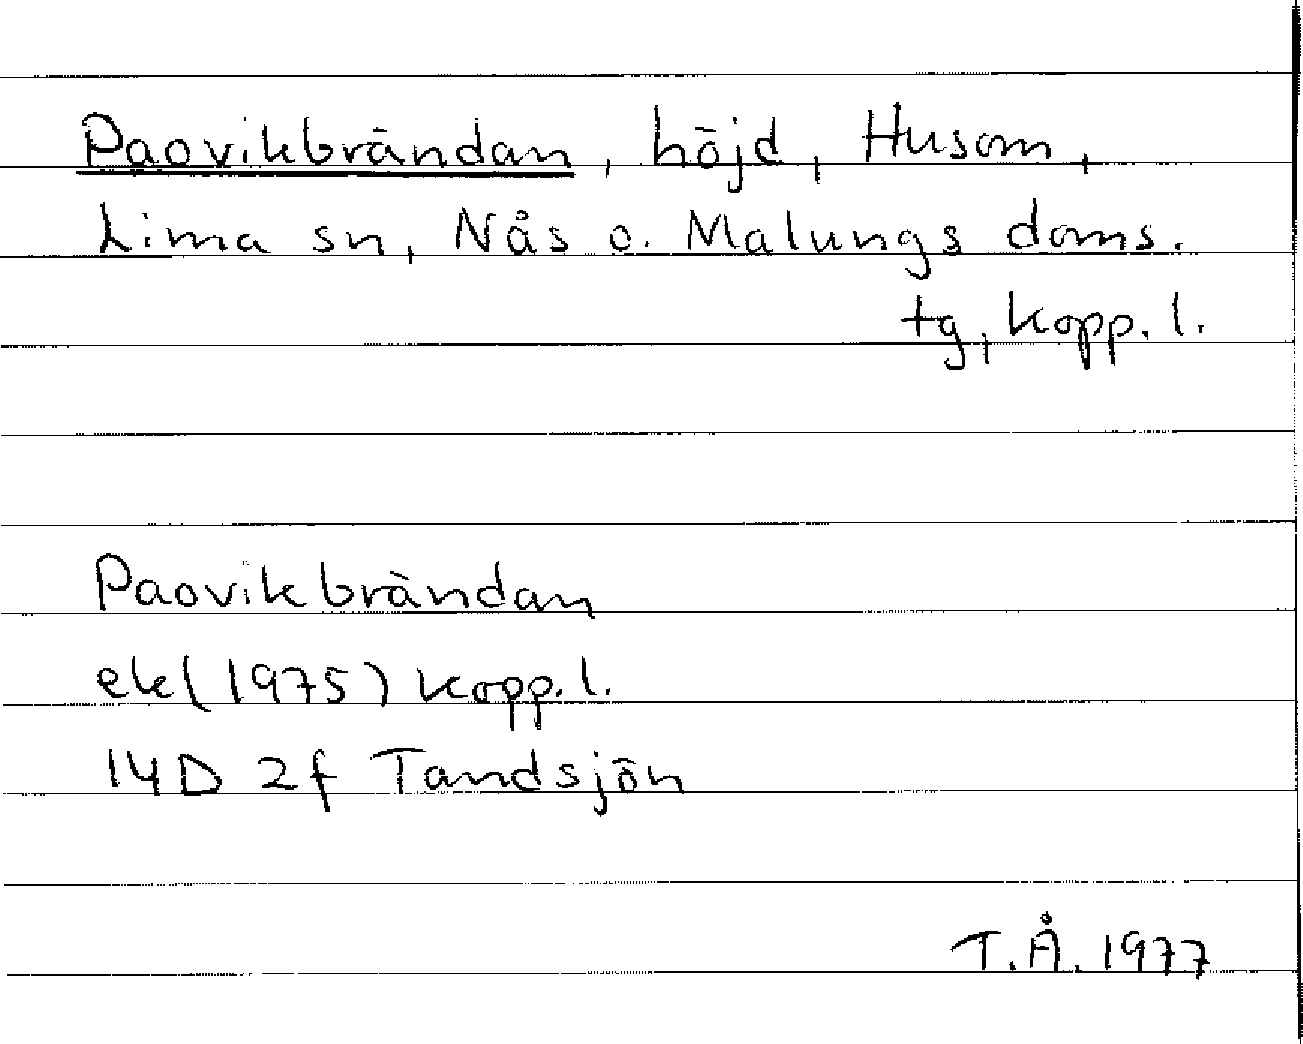 Paovikbrändan, höjd, Husom,
Lima sn, Nås o. Malungs doms.
tg, Kopp. l.
Paovikbrändan
ek (1975) Kopp. l.
14D 2f Tandsjön
T.Å. 1977